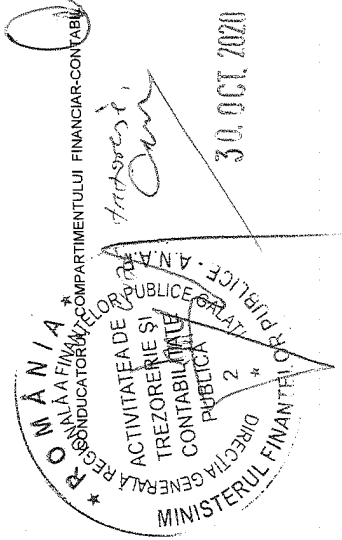 CONDUCATORUL COMPARTIMENTULUI FINANCIAR-CONTABIL
★ ROMÂNIA ★
MINISTERUL FINANȚELOR PUBLICE - A.N.A.F.
DIRECȚIA GENERALĂ REGIONALĂ A FINANȚELOR PUBLICE GALAȚI
ACTIVITATEA DE
TREZORERIE ȘI
CONTABILITATE
PUBLICĂ
2
★
30. OCT. 2020